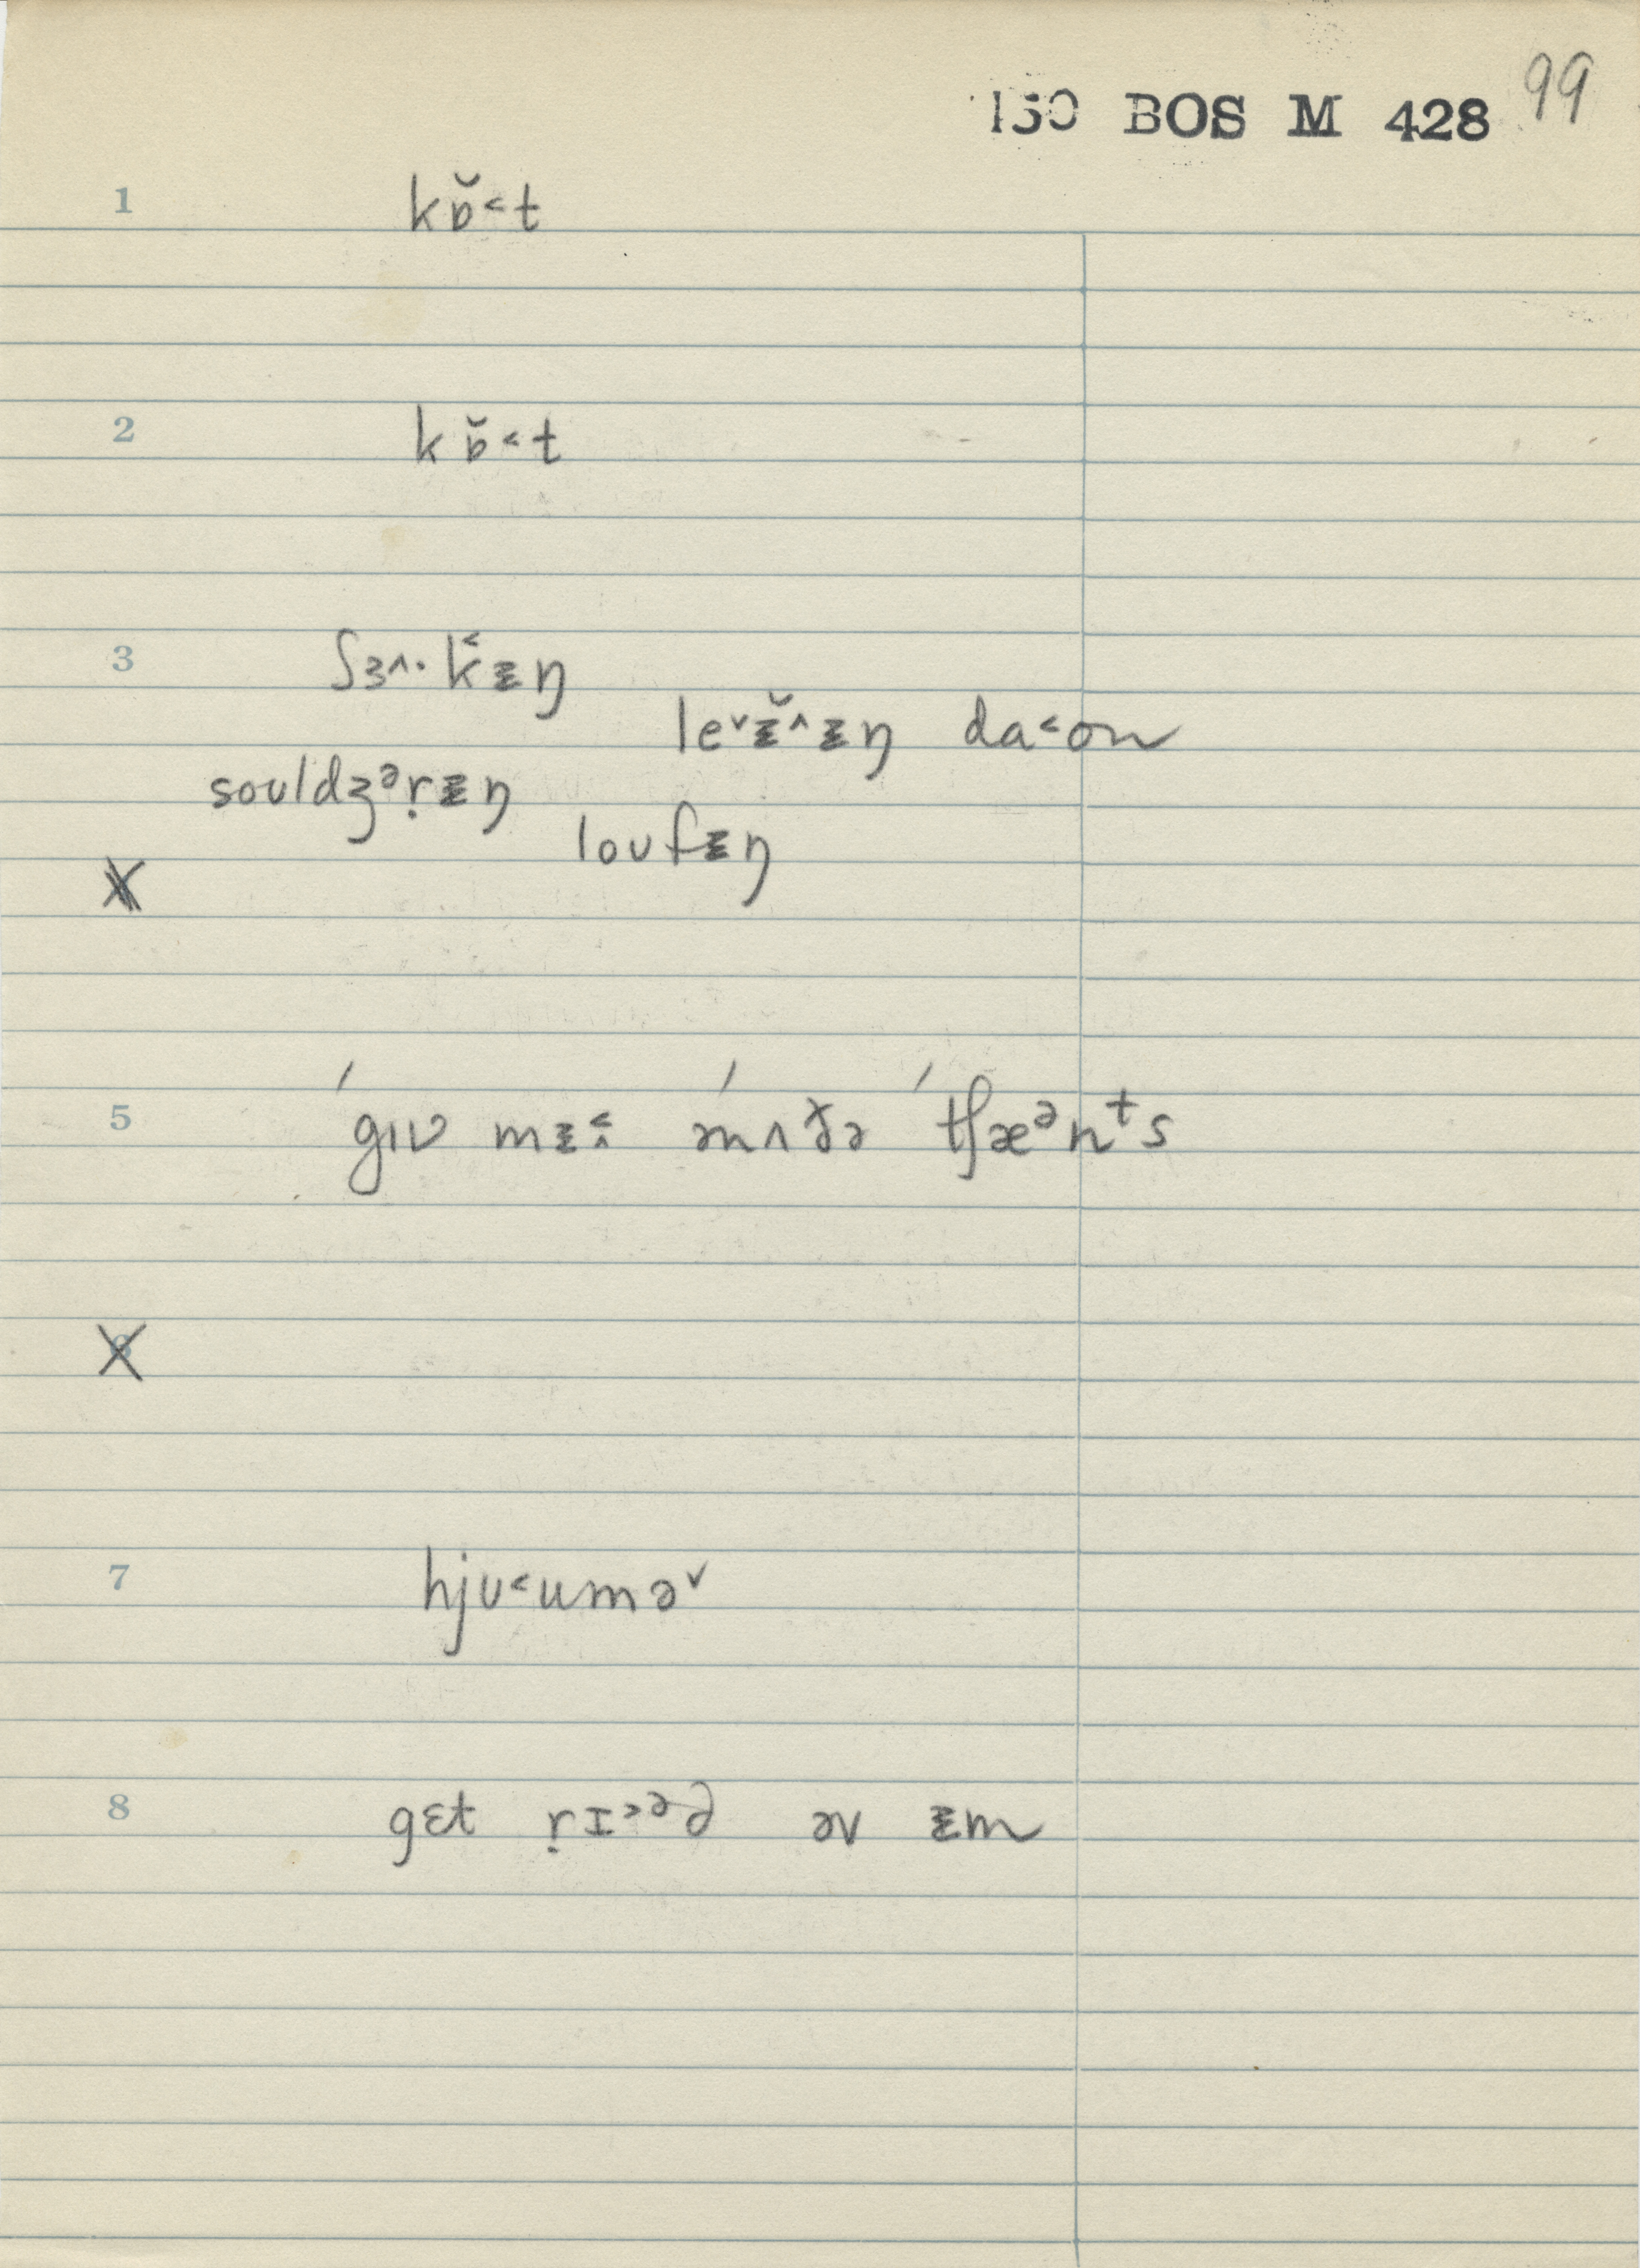 150 BOS M 428 99
1 kɒ̆˂t
2 kɒ̆˂t
3 ʃɜ˄·k̂ᵻŋ
le˅ᵻ̆˄ᵻŋ da˂ʊn
soʊldʒᵊṛᵻŋ
loʊfᵻŋ
X
5 ˈgɪv mᵻ˂˄ əˈnʌðə ˈtʃæᵊnᵗs
X
7 hjʊ˂umə˅
8 gɛt ṛɪ˃ᵊd əv ᵻm